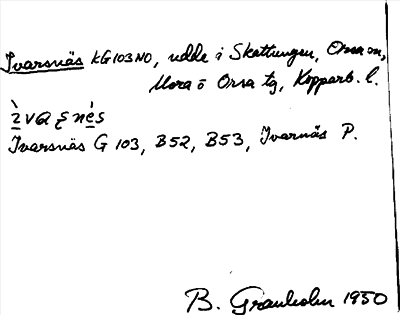 Ivarsnäs KG103NO, udde i Skattungen, Orsa sn,
Mora o Orsa tg, Kopparb. l.
ìvaʂnès
Ivarsnäs G 103, B52, B53, Ivarnäs P.
B. Granholm 1950